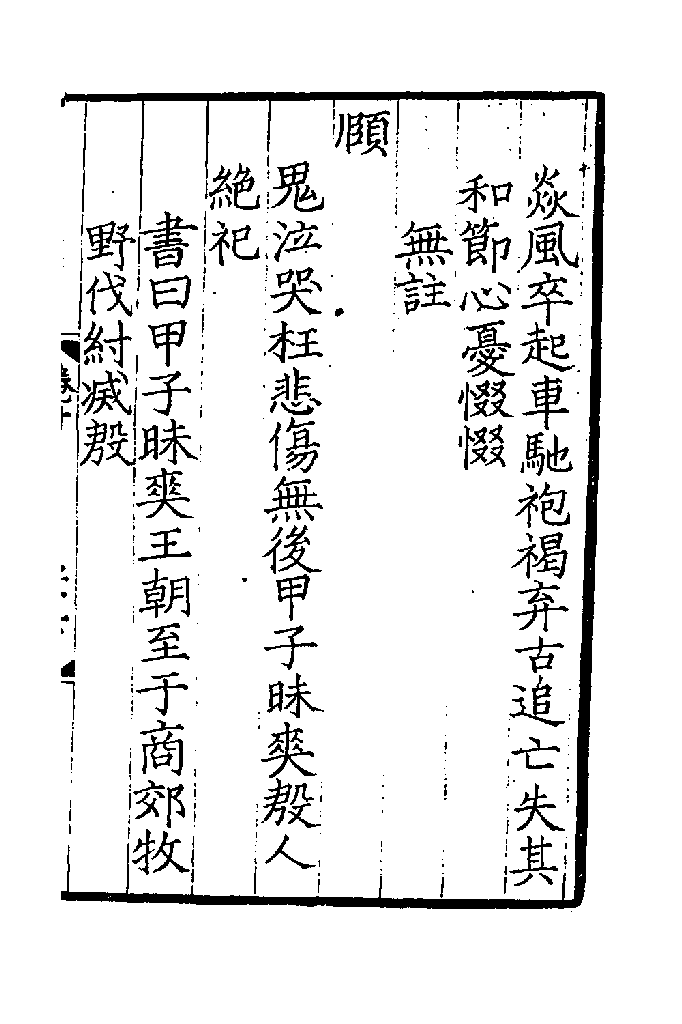 焱風卒起車馳袍褐弃古追亡失其
和節心憂惙惙
無註
頤
鬼泣哭枉悲傷無後甲子昧爽殷人
絶祀
書曰甲子昧爽王朝至于商郊牧
野伐紂滅殷